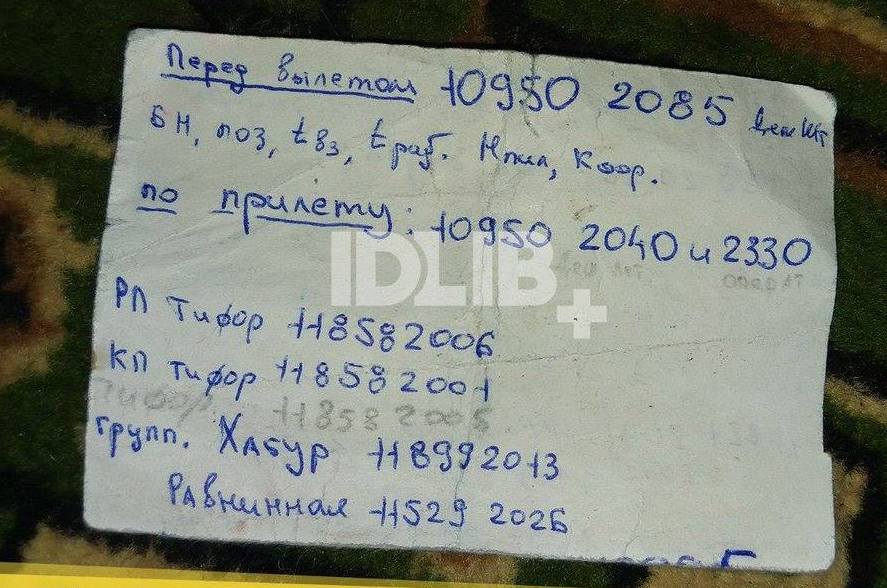 Перед вылетом 10950 2085
БН, поз, tвз, tраб. Нпил, коор.
по прилету: 10950 2040 и 2330
IDLIB
РП Тифор 118582006
КП Тифор 118582001
Тифор 11858 2005
групп. Хабур 118992013
Равнинная 11529 2026